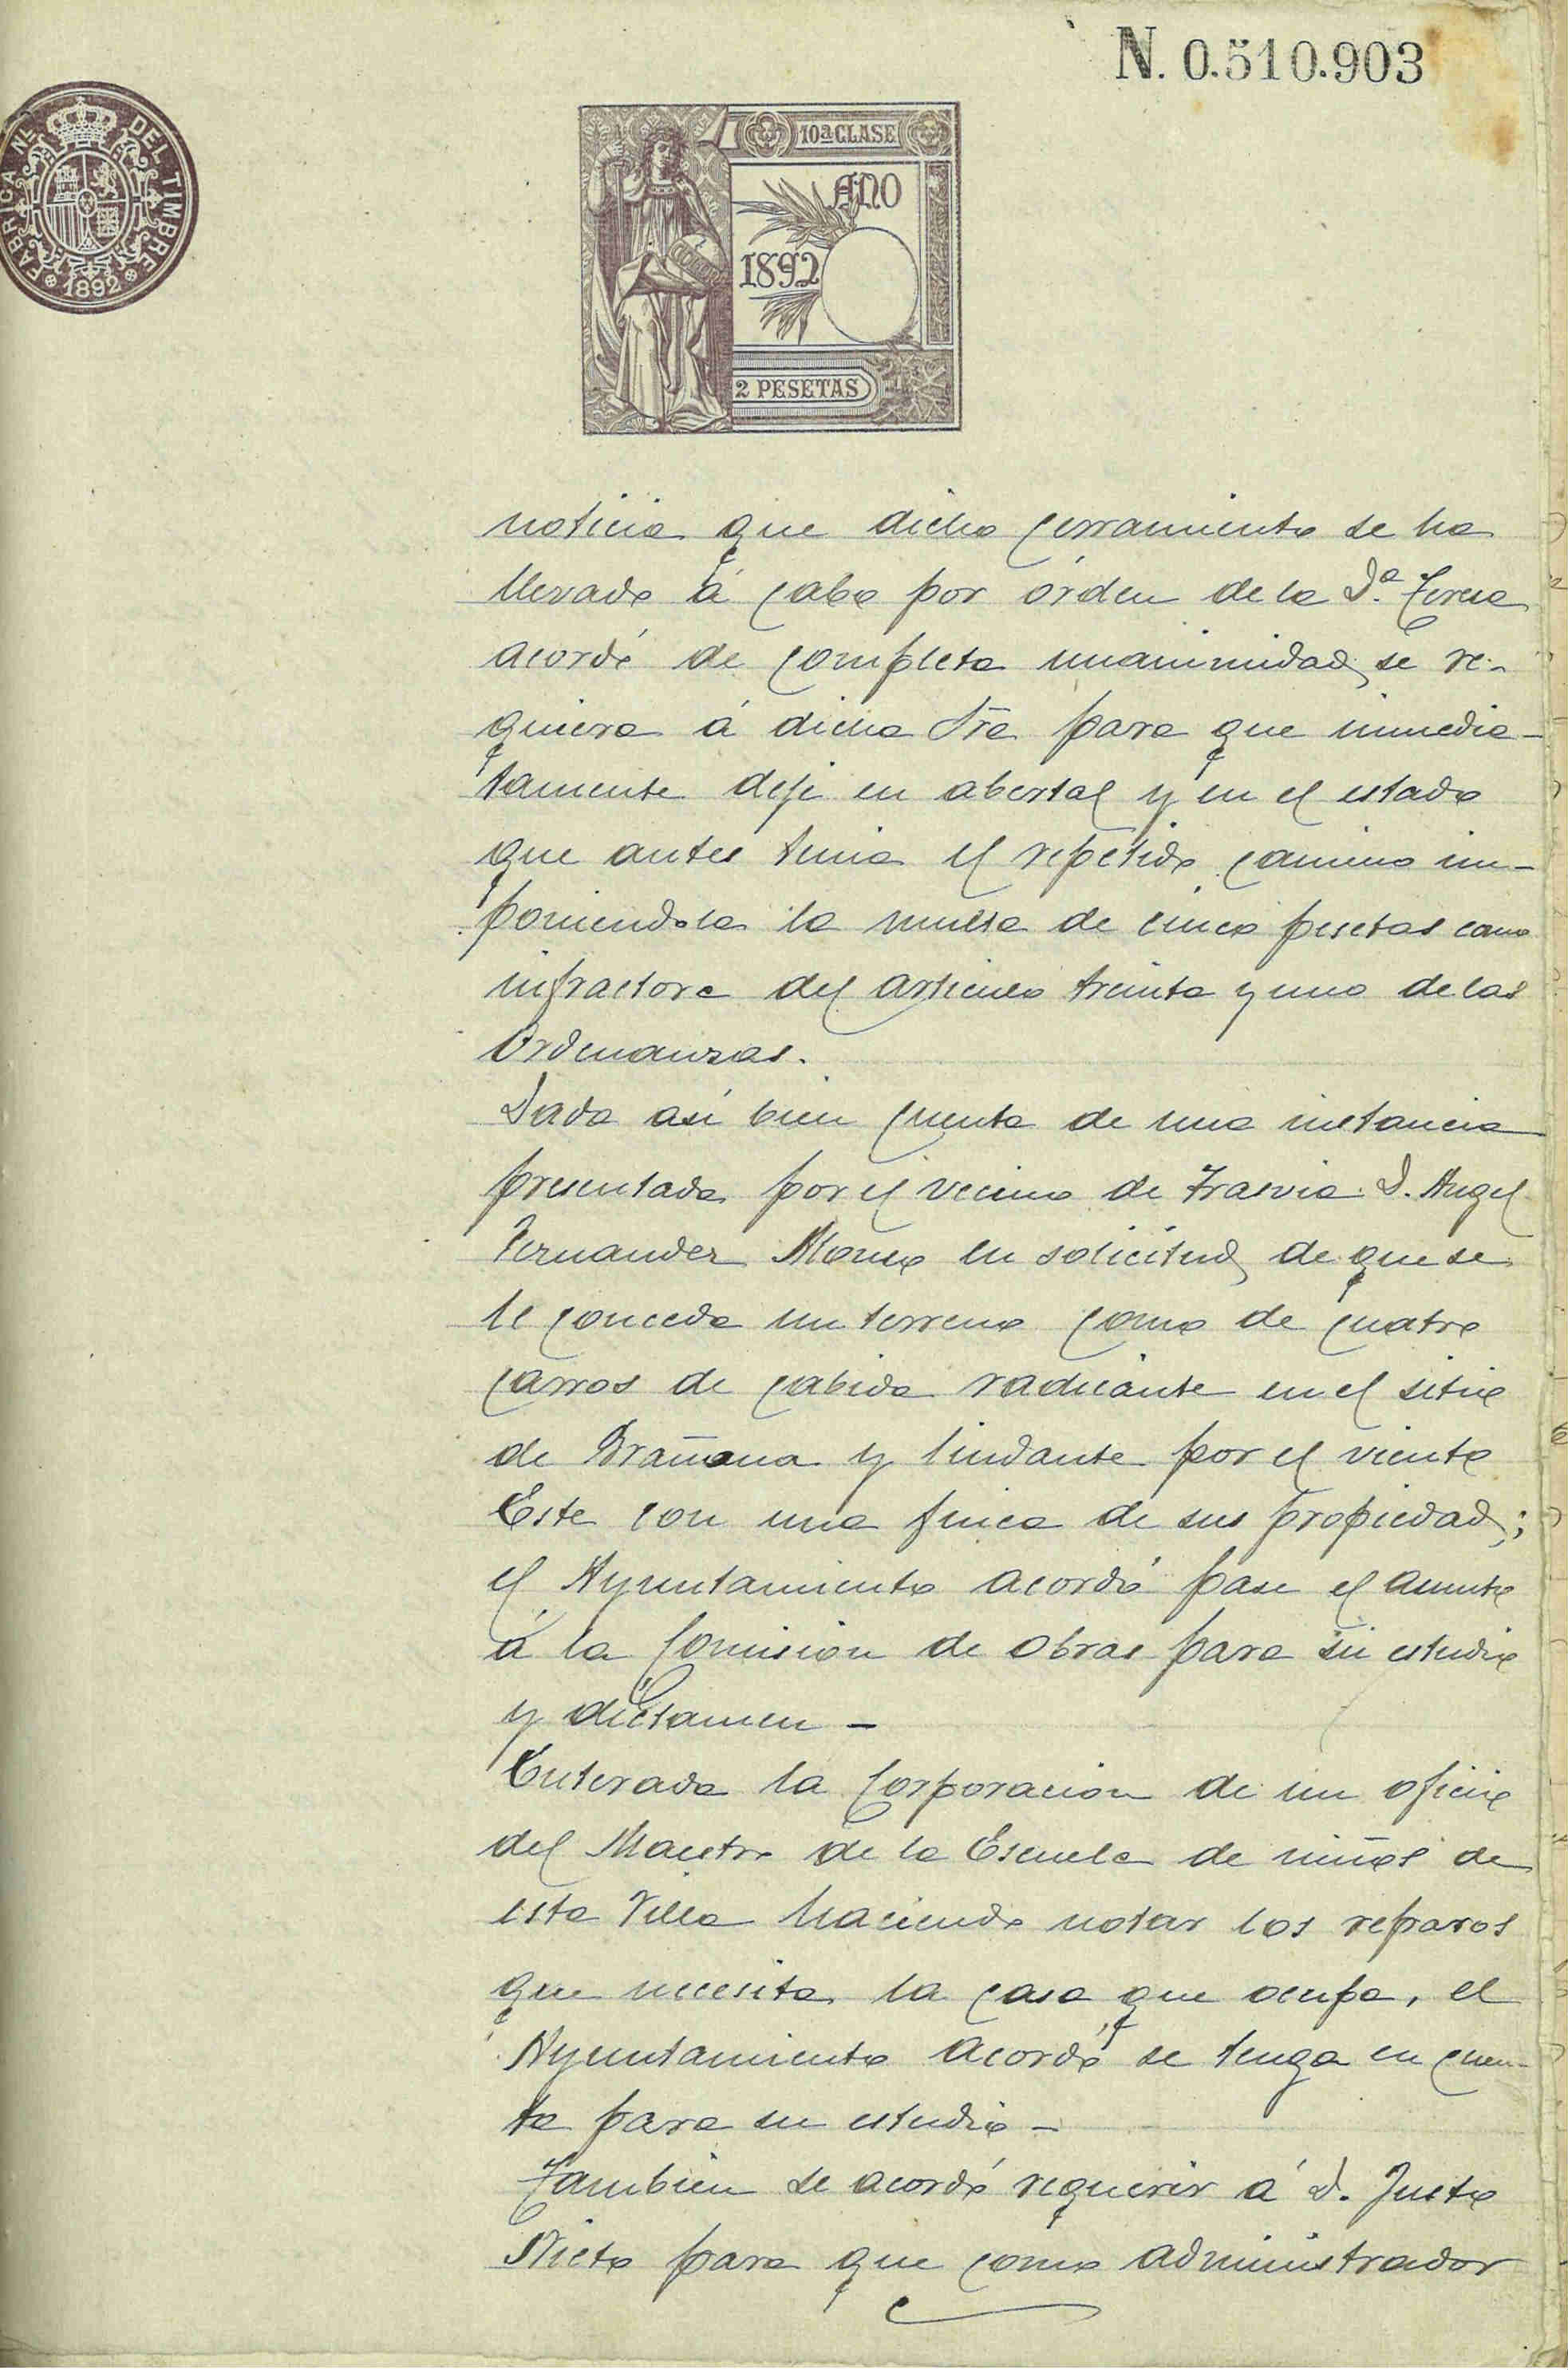 N. 0.510.903
FABRICA NL. DEL TIMBRE
1892
10ª CLASE
AÑO
1892
2 PESETAS
noticia que dicho cerramiento se ha
llevado á cabo por órden de la D.ª Teresa
acordó de completa unanimidad se re-
quiera á dicha Sra para que inmedia-
tamente deje en abertal y en el estado
que antes tenia el repetido camino im-
poniendola la multa de cinco pesetas como
infractora del articulo treinta y uno de las
Ordenanzas.
Dada asi bien cuenta de una instancia
presentada por el vecino de Trasvia D. Angel
Fernandez Alonso en solicitud de que se
le conceda un terreno como de cuatro
carros de cabida radicante en el sitio
de Brañona y lindante por el viento
Este con una finca de sus propiedad;
el Ayuntamiento acordó pase el asunto
á la Comision de obras para su estudio
y dictamen -
Enterada la Corporacion de un oficio
del Maestro de la Escuela de niños de
esta Villa haciendo notar los reparos
que necesita la casa que ocupa, el
Ayuntamiento acordó se tenga en cuen-
ta para su estudio -
Tambien se acordó requerir á D. Justo
Nieto para que como administrador